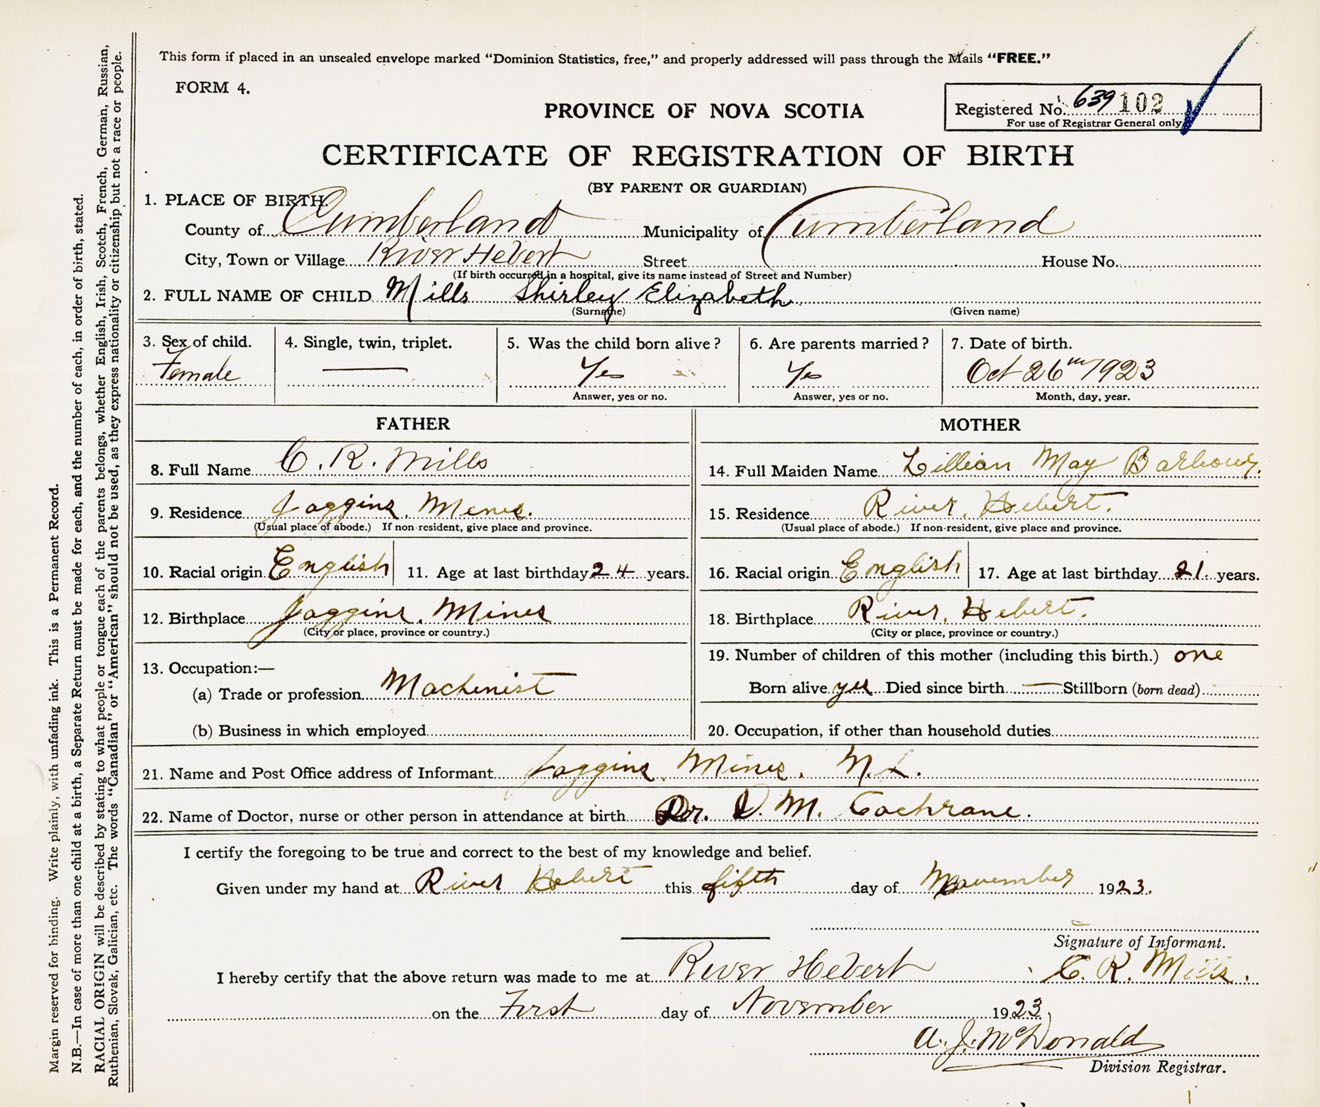 This form if placed in an unsealed envelope marked "Dominion Statistics, free," and properly addressed will pass through the Mails "FREE."
FORM 4.
Registered No. 639 102
For use of Registrar General only
PROVINCE OF NOVA SCOTIA
CERTIFICATE OF REGISTRATION OF BIRTH
(BY PARENT OR GUARDIAN)
1. PLACE OF BIRTH.
County of Cumberland Municipality of Cumberland
City, Town or Village River Hebert Street House No.
(If birth occurred in a hospital, give its name instead of Street and Number)
2. FULL NAME OF CHILD Mills Shirley Elizabeth
(Surname) (Given name)
3. Sex of child. 4. Single, twin, triplet. 5. Was the child born alive? 6. Are parents married? 7. Date of birth.
Female — Yes Yes Oct 26th 1923
Answer, yes or no. Answer, yes or no. Month, day, year.
FATHER MOTHER
8. Full Name C. R. Mills 14. Full Maiden Name Lillian May Barhour.
9. Residence Joggins Mines. 15. Residence River Hebert.
(Usual place of abode.) If non-resident, give place and province. (Usual place of abode.) If non-resident, give place and province.
10. Racial origin English 11. Age at last birthday 24 years. 16. Racial origin English 17. Age at last birthday 21 years.
12. Birthplace Joggins Mines 18. Birthplace River Hebert.
(City or place, province or country.) (City or place, province or country.)
13. Occupation:— 19. Number of children of this mother (including this birth.) one
(a) Trade or profession Machinist Born alive yes Died since birth — Stillborn (born dead)
(b) Business in which employed 20. Occupation, if other than household duties
21. Name and Post Office address of Informant Joggins Mines. N.S.
22. Name of Doctor, nurse or other person in attendance at birth Dr. D. M. Cochrane.
I certify the foregoing to be true and correct to the best of my knowledge and belief.
Given under my hand at River Hebert this fifth day of November 1923.
Signature of Informant.
I hereby certify that the above return was made to me at River Hebert C. R. Mills.
on the First day of November 1923
A. J. McDonald
Division Registrar.
Margin reserved for binding. Write plainly, with unfading ink. This is a Permanent Record.
N.B.—In case of more than one child at a birth, a Separate Return must be made for each, and the number of each, in order of birth, stated.
RACIAL ORIGIN will be described by stating to what people or tongue each of the parents belongs, whether English, Irish, Scotch, French, German, Russian,
Ruthenian, Slovak, Galician, etc. The words "Canadian" or "American" should not be used, as they express nationality or citizenship but not a race or people.